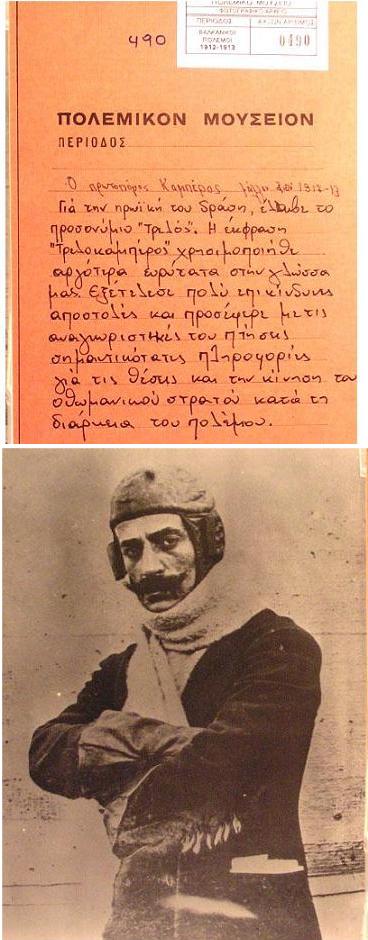 ΠΟΛΕΜΙΚΟ ΜΟΥΣΕΙΟ
ΦΩΤΟΓΡΑΦΙΚΟ ΑΡΧΕΙΟ
ΠΕΡΙΟΔΟΣ
ΑΥΞΩΝ ΑΡΙΘΜΟΣ
ΒΑΛΚΑΝΙΚΟΙ
ΠΟΛΕΜΟΙ
1912-1913
0490
490
ΠΟΛΕΜΙΚΟΝ ΜΟΥΣΕΙΟΝ
ΠΕΡΙΟΔΟΣ
Ο πρωτοπόρος Καμπέρος 1912-13
Γιά την ηρωϊκή του δράση, έλαβε το
προσονύμιο "Τρελός". Η έκφραση
"Τρελοκαμπέρος" χρησιμοποιήθηκε
αργότερα ευρύτατα στην γλώσσα
μας. Εξετέλεσε πολύ επικίνδυνες
αποστολές και προσέφερε με τις
αναγνωριστικές του πτήσεις
σημαντικότατες πληροφορίες
γιά τις θέσεις και την κίνηση του
οθωμανικού στρατού κατά τη
διάρκεια του πολέμου.